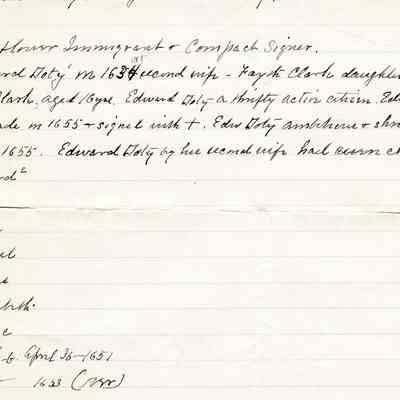 flower Immigrant & Compact Signer.
ard Doty m 1634 second wife - Fayth Clark daughter
Clark, aged 16 yrs. Edward Doty a thrifty active citizen. Ed
ade in 1655 & signed with +. Edw Doty ambitious & shr
1655. Edward Doty by his second wife had seven ch
rd²
beth.
b. April 30-1651
1653 (over)